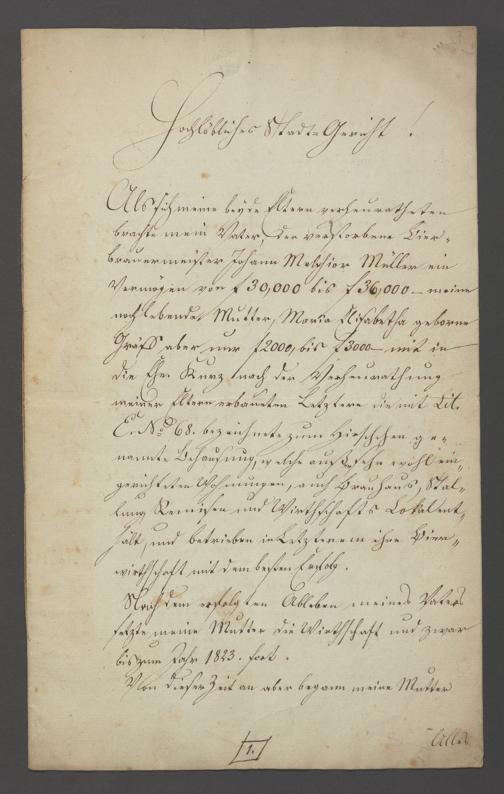 Hochlöbliches Stadt-Gericht!
Als sich meine beyde Eltern verheuratheten
brachte mein Vater, der verstorbene Bier-
brauermeister Johann Melchior Müller ein
Vermögen von f 30,000 bis f 36,000 – meine
noch lebende Mutter, Maria Elisabetha geborne
Graff aber nur f 2000, bis f 3000 – mit in
die Ehe. Kurz nach der Verheurathung
meiner Eltern erbauten Letztere die mit Lit.
E. No 68. bezeichnete zum Hirschchen ge-
nannte Behausung, welche aus zehn wohl ein-
gerichteten Wohnungen, auch Brauhaus, Stal-
lung Remisen und Wirthschafts Lokal ent-
hält, und betrieben in Letzterem ihre Bier-
wirthschaft mit dem besten Erfolg.
Nach dem erfolgten Ableben meines Vaters
setzte meine Mutter die Wirthschaft und zwar
bis zum Jahr 1823. fort.
Von dieser Zeit an aber begann meine Mutter
1.